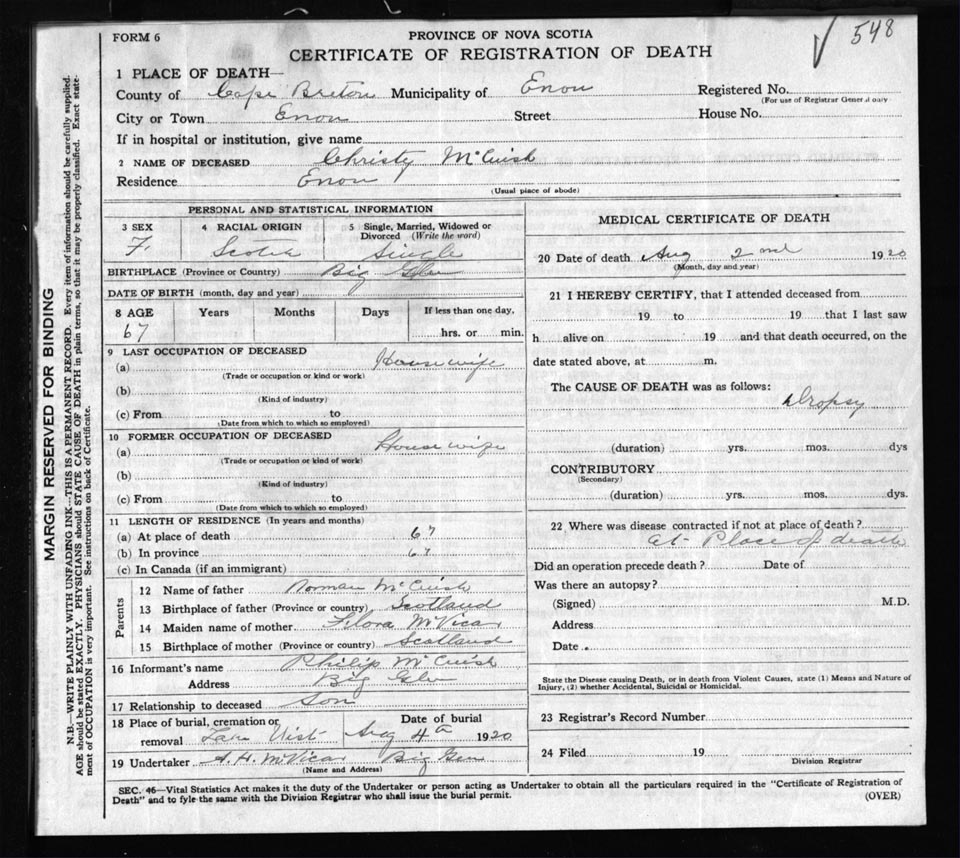 FORM 6
PROVINCE OF NOVA SCOTIA
548
CERTIFICATE OF REGISTRATION OF DEATH
1 PLACE OF DEATH—
County of Cape Breton Municipality of Enon Registered No.
(For use of Registrar General only
City or Town Enon Street House No.
If in hospital or institution, give name
2 NAME OF DECEASED Christy McCuish
Residence Enon
(Usual place of abode)
PERSONAL AND STATISTICAL INFORMATION
3 SEX 4 RACIAL ORIGIN 5 Single, Married, Widowed or Divorced (Write the word)
F. Scotch Single
BIRTHPLACE (Province or Country) Big Glen
DATE OF BIRTH (month, day and year)
8 AGE Years Months Days If less than one day,
67 hrs. or min.
9 LAST OCCUPATION OF DECEASED
(a) House wife
(Trade or occupation or kind or work)
(b)
(Kind of industry)
(c) From to
(Date from which to which so employed)
10 FORMER OCCUPATION OF DECEASED
(a) House wife
(Trade or occupation or kind of work)
(b)
(Kind of industry)
(c) From to
(Date from which to which so employed)
11 LENGTH OF RESIDENCE (In years and months)
(a) At place of death 67
(b) In province 67
(c) In Canada (if an immigrant)
Parents
12 Name of father Norman McCuish
13 Birthplace of father (Province or country) Scotland
14 Maiden name of mother Flora McVicar
15 Birthplace of mother (Province or country) Scotland
16 Informant's name Philip McCuish
Address Big Glen
17 Relationship to deceased Son
18 Place of burial, cremation or Date of burial
removal Loch Uist Aug 4th 1920
19 Undertaker A. H. McVicar Big Glen
(Name and Address)
MEDICAL CERTIFICATE OF DEATH
20 Date of death Aug 2nd 1920
(Month, day and year)
21 I HEREBY CERTIFY, that I attended deceased from
19 to 19 that I last saw
h alive on 19 and that death occurred, on the
date stated above, at m.
The CAUSE OF DEATH was as follows:
Dropsy
(duration) yrs. mos. dys
CONTRIBUTORY
(Secondary)
(duration) yrs. mos. dys.
22 Where was disease contracted if not at place of death?
at Place of death
Did an operation precede death? Date of
Was there an autopsy?
(Signed) M.D.
Address
Date
State the Disease causing Death, or in death from Violent Causes, state (1) Means and Nature of
Injury, (2) whether Accidental, Suicidal or Homicidal.
23 Registrar's Record Number
24 Filed 19
Division Registrar
SEC. 46—Vital Statistics Act makes it the duty of the Undertaker or person acting as Undertaker to obtain all the particulars required in the "Certificate of Registration of
Death" and to fyle the same with the Division Registrar who shall issue the burial permit. (OVER)
MARGIN RESERVED FOR BINDING
N.B.—WRITE PLAINLY WITH UNFADING INK—THIS IS A PERMANENT RECORD. Every item of information should be carefully supplied.
AGE should be stated EXACTLY. PHYSICIANS should STATE CAUSE OF DEATH in plain terms, so that it may be properly classified. Exact state-
ment of OCCUPATION is very important. See instructions on back of Certificate.